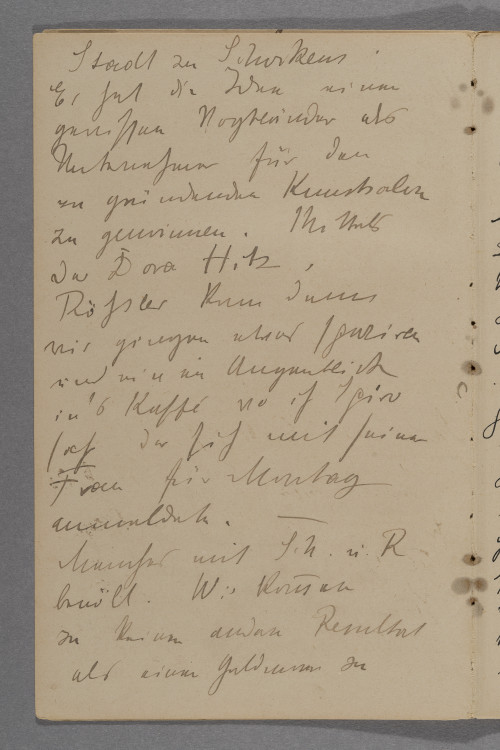 Stadt zu Schirkens.
Er hat die Idee einen
gewissen Vogtländer als
Unternehmer für den
zu gründenden Kunstsalon
zu gewinnen. Mittels
der Dora Hitz,
Rößler kam dann
wir gingen etwas spaziren
und ein im Augenblick
in's Kaffé wo ich Spiro
sah der sich mit seiner
Frau für Montag
anmeldete. —
mit Sch. u. R
Wir kommen
zu keinem andern Resultat
als einen Geldmann zu